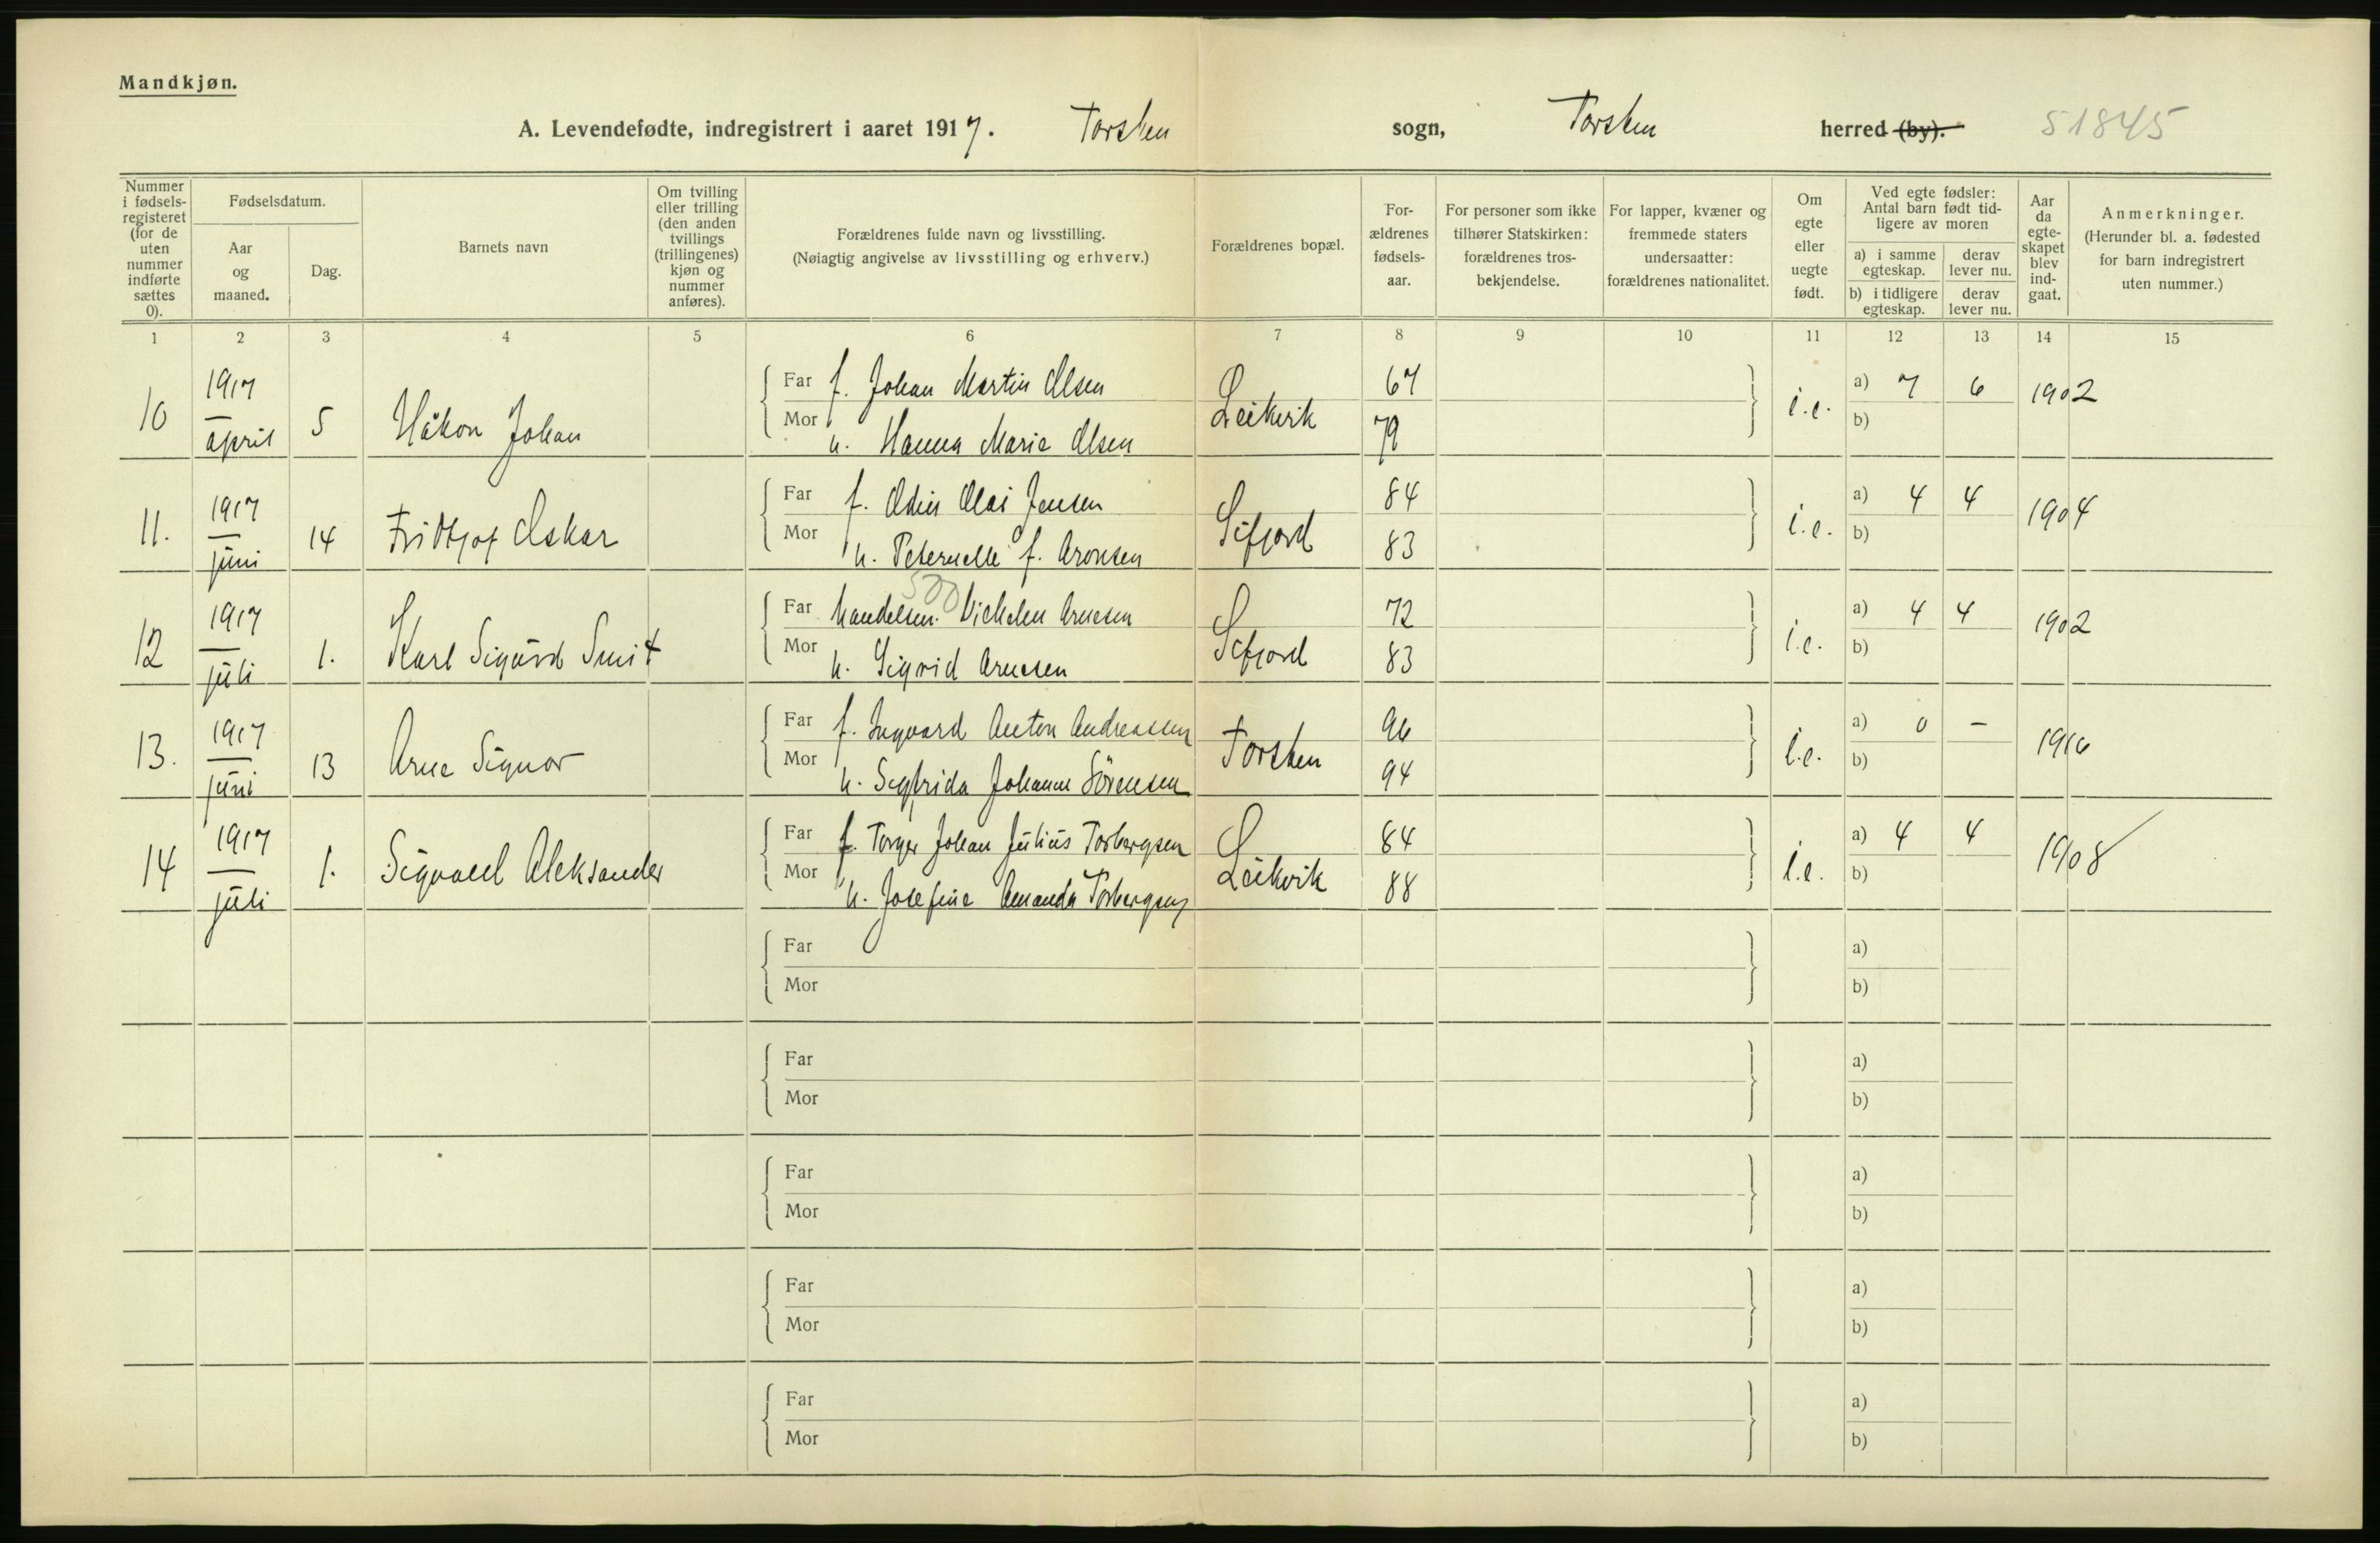 Mandkjøn.
A. Levendefødte, indregistrert i aaret 1917. Torsken sogn, Torsken herred (by). 51845
Nummer i fødsels-registeret (for de uten nummer indførte sættes 0).
Fødselsdatum.
Aar og maaned.
Dag.
Barnets navn
Om tvilling eller trilling (den anden tvillings (trillingenes) kjøn og nummer anføres).
Forældrenes fulde navn og livsstilling.
(Nøiagtig angivelse av livsstilling og erhverv.)
Forældrenes bopæl.
For-ældrenes fødsels-aar.
For personer som ikke tilhører Statskirken: forældrenes tros-bekjendelse.
For lapper, kvæner og fremmede staters undersaatter: forældrenes nationalitet.
Om egte eller uegte født.
Ved egte fødsler: Antal barn født tid-ligere av moren
a) i samme egteskap.
derav lever nu.
b) i tidligere egteskap.
derav lever nu.
Aar da egte-skapet blev ind-gaat.
Anmerkninger.
(Herunder bl. a. fødested for barn indregistrert uten nummer.)
1 2 3 4 5 6 7 8 9 10 11 12 13 14 15
10 1917 april 5 Håkon Johan
Far f. Johan Martin Olsen Leikvik 67 i.e. a) 7 6 1902
Mor h. Hanna Marie Olsen 79 b)
11. 1917 juni 14 Fridtjof Oskar
Far f. Odin Olai Jensen Sifjord 84 i.e. a) 4 4 1904
Mor h. Peternelle f. Aronsen 83 b)
500
12 1917 juli 1. Karl Sigurd Smit
Far handelsm. Vichelm Arnesen Sifjord 72 i.e. a) 4 4 1902
Mor h. Sigrid Arnesen 83 b)
13. 1917 juni 13 Arne Signor
Far f. Ingvard Anton Andreassen Torsken 96 i.e. a) 0 - 1916
Mor h. Segfrida Johanne Sörensen 94 b)
14 1917 juli 1. Sigvald Aleksander
Far f. Torger Johan Julius Torbergsen Leikvik 84 i.e. a) 4 4 1908
Mor h. Josefine Amanda Torbergsen 88 b)
Far a)
Mor b)
Far a)
Mor b)
Far a)
Mor b)
Far a)
Mor b)
Far a)
Mor b)